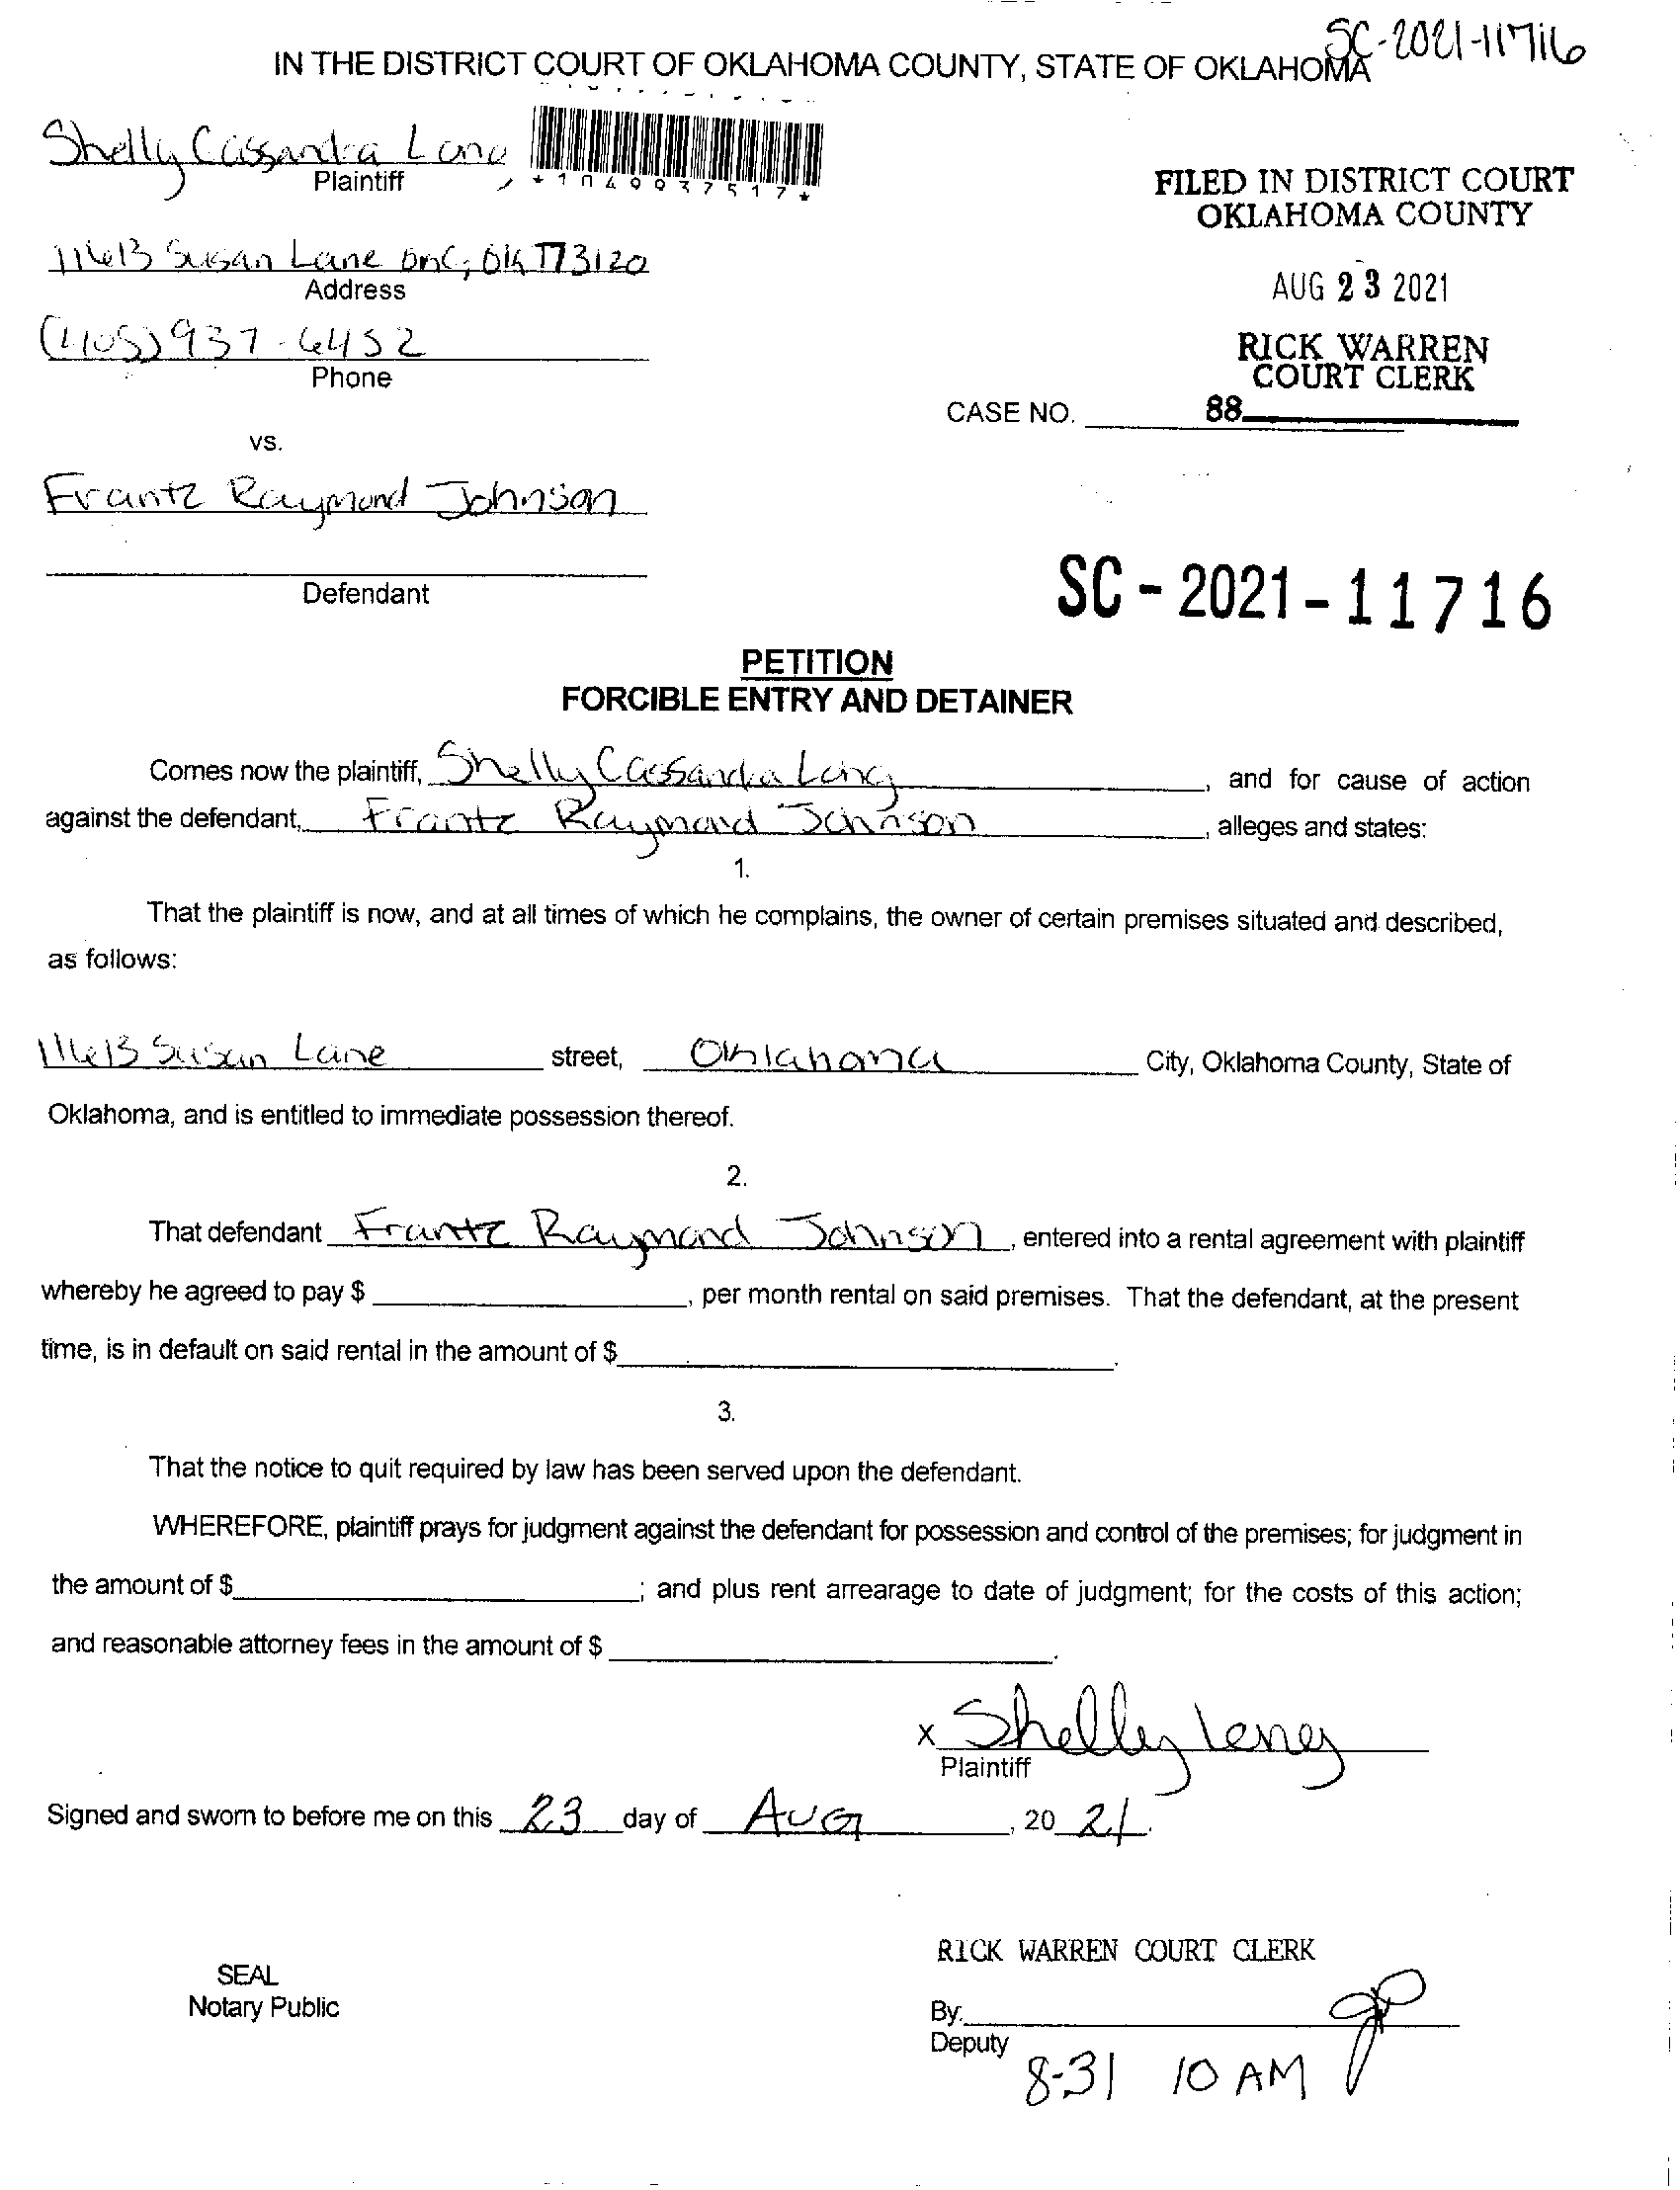 SC-2021-11716
IN THE DISTRICT COURT OF OKLAHOMA COUNTY, STATE OF OKLAHOMA
Shelly Cassandra Long
Plaintiff
*1049937517*
FILED IN DISTRICT COURT
OKLAHOMA COUNTY
11613 Susan Lane OKC, OK 73120
Address
AUG 23 2021
(405) 937-6452
Phone
RICK WARREN
COURT CLERK
CASE NO. 88
vs.
Frantz Raymond Johnson
Defendant
SC-2021-11716
PETITION
FORCIBLE ENTRY AND DETAINER
Comes now the plaintiff, Shelly Cassandra Long, and for cause of action
against the defendant, Frantz Raymond Johnson, alleges and states:
1.
That the plaintiff is now, and at all times of which he complains, the owner of certain premises situated and described,
as follows:
11613 Susan Lane street, Oklahoma City, Oklahoma County, State of
Oklahoma, and is entitled to immediate possession thereof.
2.
That defendant Frantz Raymond Johnson, entered into a rental agreement with plaintiff
whereby he agreed to pay $ , per month rental on said premises. That the defendant, at the present
time, is in default on said rental in the amount of $ .
3.
That the notice to quit required by law has been served upon the defendant.
WHEREFORE, plaintiff prays for judgment against the defendant for possession and control of the premises; for judgment in
the amount of $ ; and plus rent arrearage to date of judgment; for the costs of this action;
and reasonable attorney fees in the amount of $ .
x Shelly Long
Plaintiff
Signed and sworn to before me on this 23 day of AUG, 20 21.
RICK WARREN COURT CLERK
SEAL
Notary Public
By:
Deputy
8-31 10 AM